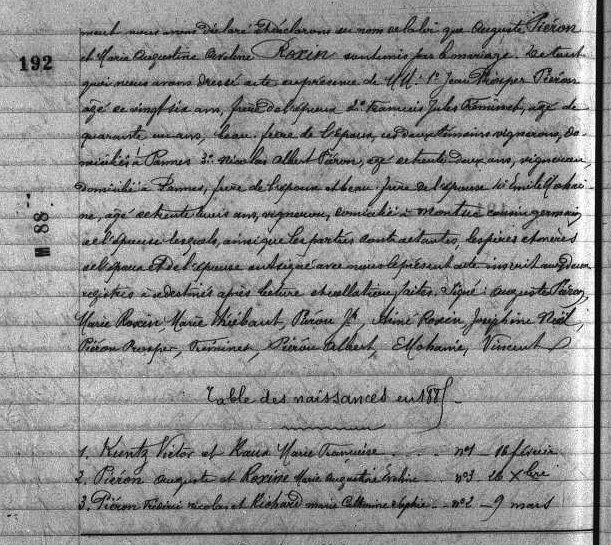 ment nous avons déclaré et déclarons au nom de la loi que Auguste Piéron
et Marie Augustine Eveline Roxin sont unis par le mariage. De tout
quoi nous avons dressé acte en présence de MM. 1° Jean Prosper Piéron
192
âgé de vingt six ans, frère de l'époux 2° François Jules Tréminet, âgé de
quarante un ans, beau-frère de l'époux, ces deux témoins vignerons, do-
miciliés à Pannes 3° Nicolas Albert Piéron, âgé de trente deux ans, vigneron,
domicilié à Pannes, frère de l'époux et beau-frère de l'épouse 4° Emile Mohai-
ne, âgé de trente trois ans, vigneron, domicilié à cousin germain
88
de l'épouse lesquels, ainsi que les parties contractantes, les pères et mères
de l'époux et de l'épouse ont signé avec nous le présent acte inscrit aux deux
registres à ce destinés après lecture et collation faites. Signé: Auguste Piéron,
Marie Roxin, Marie Thiébaut, Piéron, Aimé Roxin, Joséphine Noël,
Piéron Prosper, Tréminet, Piéron Albert, E. Mohaine, Vincent
Table des naissances en 188
1. Kuntz Victor et Raux Marie Françoise n°1 - 16 février
2. Piéron Auguste et Roxine Marie Augustine Eveline n°3 26 Xbre
3. Piéron Frédéric Nicolas et Richard Marie Catherine Sophie n°2 - 9 mars